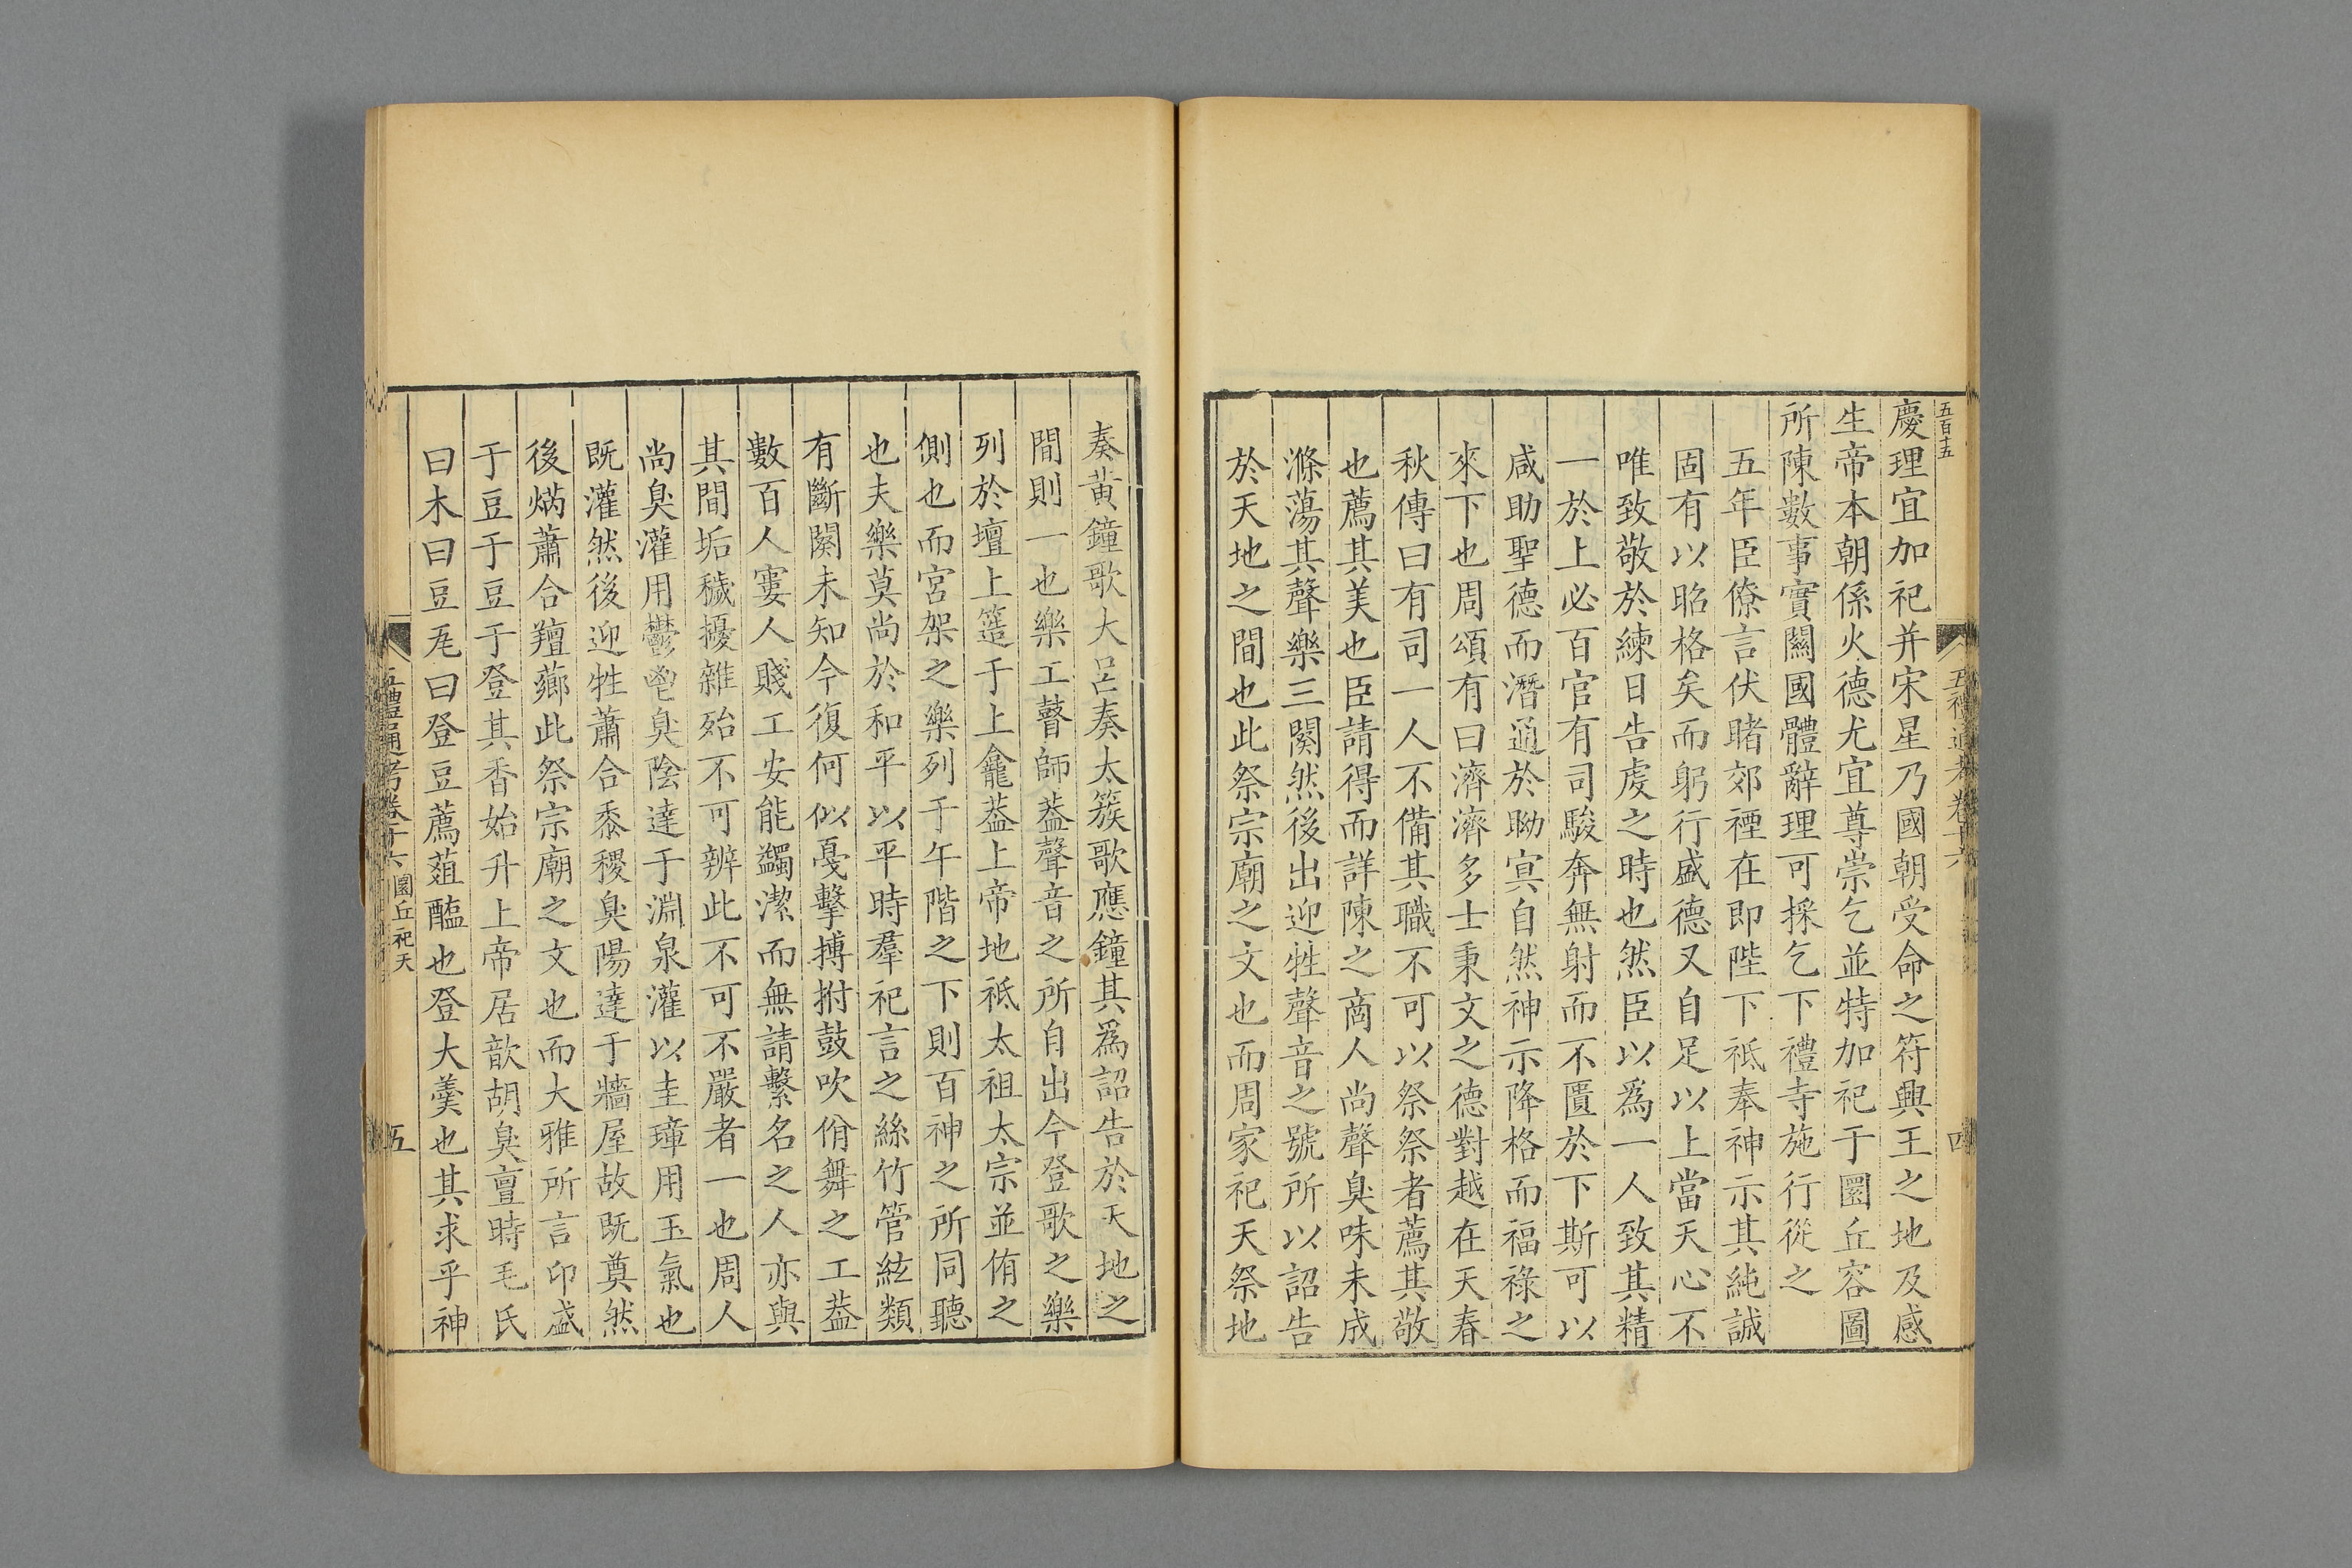 五百十五
五禮通考卷十六
四
慶理宜加祀并宋星乃國朝受命之符興王之地及感
生帝本朝係火德尤宜尊崇乞並特加祀于圜丘容圖
所陳數事實關國體辭理可採乞下禮寺施行從之
五年臣僚言伏睹郊禋在即陛下祗奉神示其純誠
固有以昭格矣而躬行盛德又自足以上當天心不
唯致敬於練日告虔之時也然臣以為一人致其精
一於上必百官有司駿奔無射而不匱於下斯可以
咸助聖德而潛通於眑冥自然神示降格而福祿之
來下也周頌有曰濟濟多士秉文之德對越在天春
秋傳曰有司一人不備其職不可以祭祭者薦其敬
也薦其美也臣請得而詳陳之商人尚聲臭味未成
滌蕩其聲樂三闋然後出迎牲聲音之號所以詔告
於天地之間也此祭宗廟之文也而周家祀天祭地
奏黃鐘歌大呂奏太簇歌應鐘其爲詔告於天地之
間則一也樂工瞽師葢聲音之所自出今登歌之樂
列於壇上簉于上龕葢上帝地祗太祖太宗並侑之
側也而宮架之樂列于午階之下則百神之所同聽
也夫樂莫尚於和平以平時羣祀言之絲竹管絃類
有斷闋未知今復何似戛擊搏拊鼓吹佾舞之工葢
數百人窶人賤工安能蠲潔而無請繫名之人亦與
其間垢穢擾雜殆不可辨此不可不嚴者一也周人
尚臭灌用鬱鬯臭陰達于淵泉灌以圭璋用玉氣也
既灌然後迎牲蕭合黍稷臭陽達于牆屋故既奠然
後焫蕭合羶薌此祭宗廟之文也而大雅所言卬盛
于豆于豆于登其香始升上帝居歆胡臭亶時毛氏
曰木曰豆瓦曰登豆薦葅醢也登大羹也其求乎神
五禮通考卷十六
圜丘祀天
五